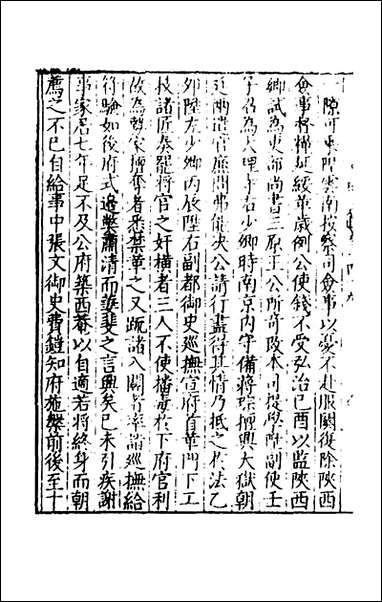 陳司東陞雲南按察司僉事以憂不赴服闋復除陝西
僉事督糧延綏革歲例公使錢不受弘治己酉以監陝西
鄉試為吏部尚書三原王公所奇改本司提學陞副使壬
子召為大理寺右少卿時南京內守備將琮搆興大獄朝
廷兩遣官廉問弗能決公請行盡得其情乃抵之於法乙
卯陞左少卿丙辰陞右副都御史巡撫宣府首革門下工
技諸匠奏罷將官之奸橫者三人不使播毒於下府官利
故為勢家擅奪者悉禁革之又疏諸入關者奉請巡撫給
符驗如後府式邊弊肅清而萋斐之言興矣己未引疾謝
事家居七年足不及公府築西菴以自適若將終身而朝
薦之不已自給事中張文御史費鎧知府施槃前後至十